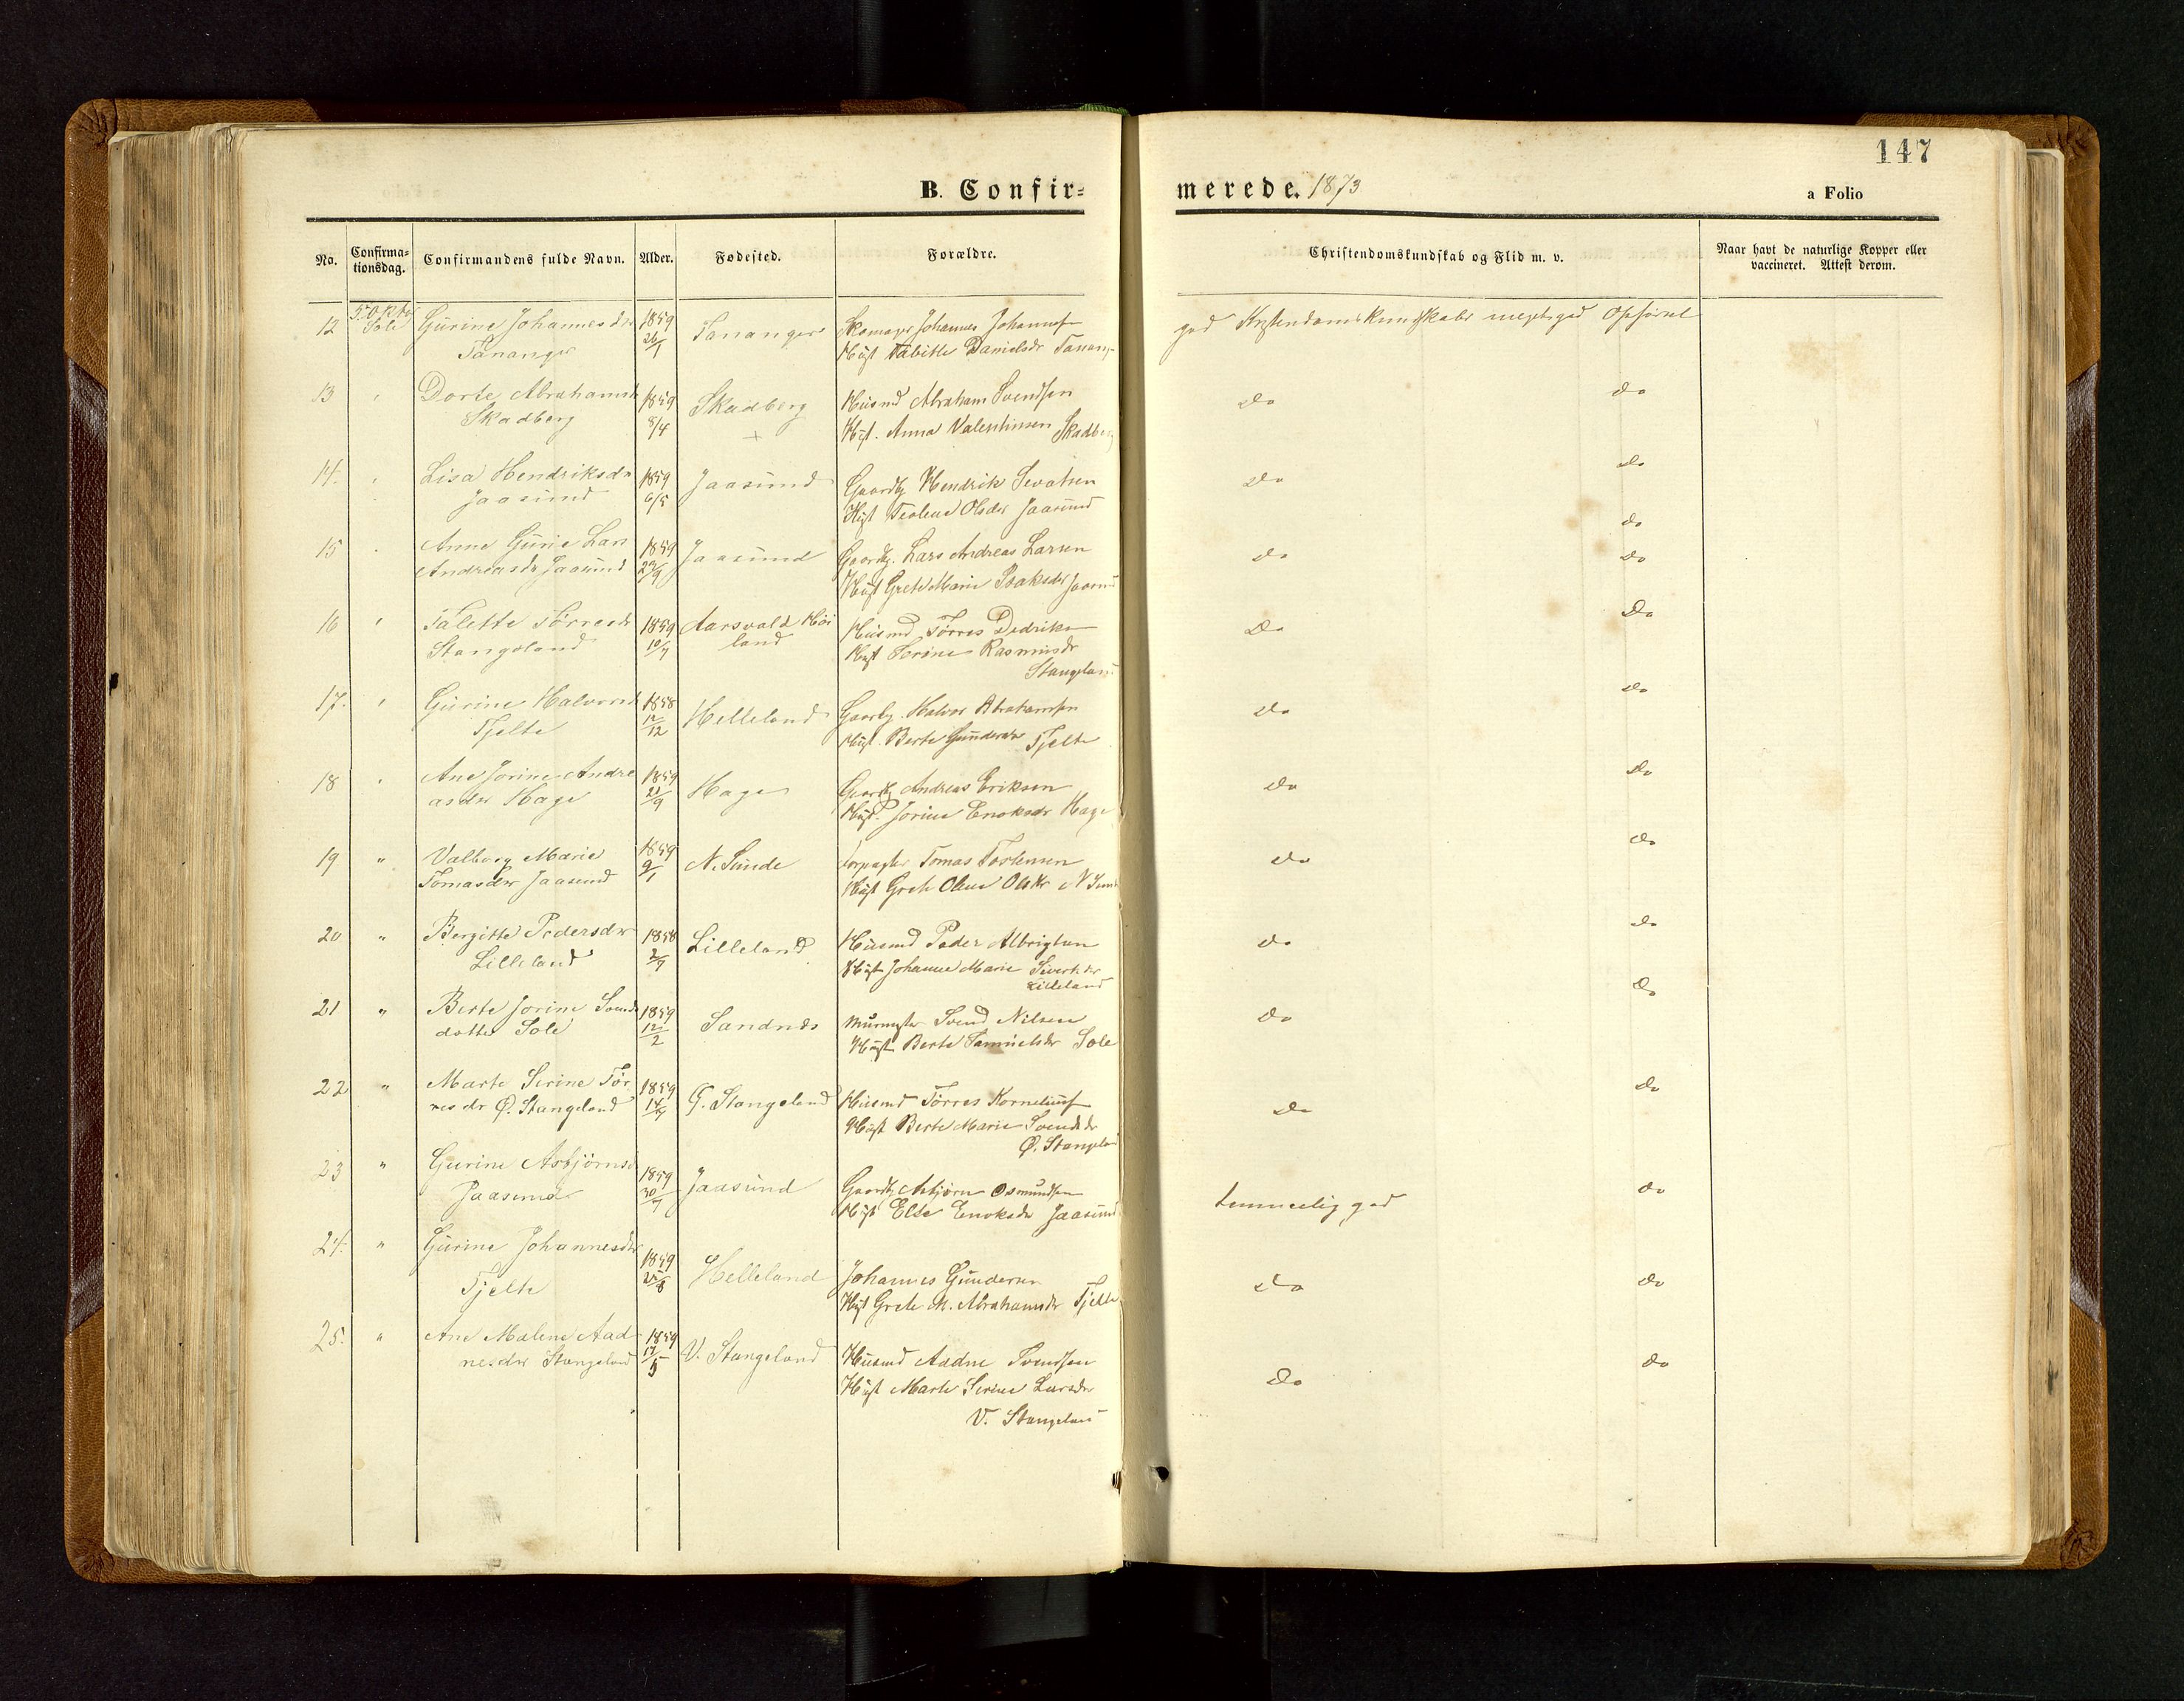 147
B. Confir=
merede. 1873
a Folio
No.
Confirma-
tionsdag.
Confirmandens fulde Navn.
Alder.
Fødested.
Forældre.
Christendomskundskab og Flid m. v.
Naar havt de naturlige Kopper eller
vaccineret. Attest derom.
12 5. Oktbr Gurine Johannesdr 1859 Tananger Skomager Johannes
Sole Tananger 26/1 Hust Tabitte Danielsdr Tanang
god Kristendomskundskabs meget god Opførsel
13 Dorte Abrahamsd 1859 Skadberg Husmd Abraham Svendsen Do Do
Skadberg 8/4 Hust. Anna Valentinsen Skadberg
14. Lisa Hendriksdr 1859 Jaasund Gaardbr Hendrik Do Do
Jaasund 6/5 Hust Olsdr Jaasund
15 Anne Gurie Lars 1859 Jaasund Gaardbr. Lars Andreas Larsen Do Do
Andreasdr Jaasund 29/9 Hust Grete Marie Isaksdr Jaasund Do
16 Talette Tørresdr 1859 Aarsvold Høi Husmd Tørres Do Do
Stangeland 10/7 land Hust Serine Rasmusdr
Stangeland
17. Gurine Halvorsd 1858 Helleland Gaardbr. Halvor Abrahamsen Do Do
Tjelte 12/12 Hust. Berte Gundersdr Tjelte
18 Ane Jorine Andre 1859 Hage Gaardbr Andreas Eriksen Do Do
asdr Hage 21/9 Hust. Jorine Enoksdr Hage
19 " Valborg Marie 1859 N. Sunde Forpagter Tomas Do Do
Tomasdr Jaasund 9/1 Hust Grete Oline Olsdr N Sund
20 " Bergitte Pedersdr 1858 Lilleland Husmd Peder Albrigtsen Do Do
Lilleland 2/9 Hust Johanne Marie Sivertsdr
Lilleland
21 " Berte Jorine Svends 1859 Sandnes Murmester Svend Nilsen Do Do
dotter Sole 12/2 Hust Berte Samuelsdr Sole
22 " Marte Serine Tør 1859 G. Stangeland Husmd Tørres Do Do
resdr Ø. Stangeland Hust Berte Marie Svendsdr
Ø. Stangeland
23 " Gurine Asbjørnsd 1859 Jaasund Gaardbr Asbjørn Osmundsen temmelig god Do
Jaasund 30/7 Hust Else Enoksdr Jaasund
24. " Gurine Johannesdr 1859 Helleland Johannes Gundersen Do Do
Tjelte Hust Grete M. Abrahamsdr Tjelte
25. " Ane Malene Aad 1859 V. Stangeland Husmd Aadne Svendsen Do Do
nesdr Stangeland 17/5 Hust Marte Serine Larsdr
V. Stangeland